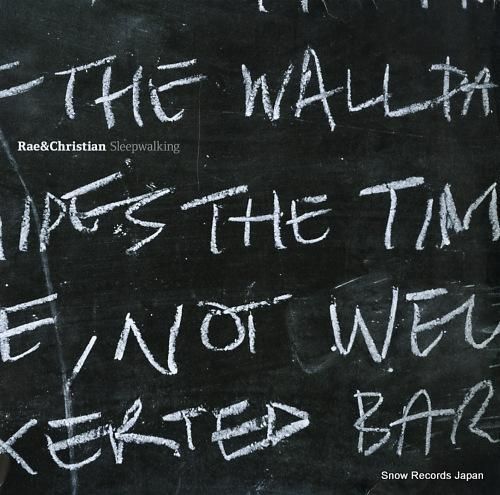 THE WALLPA
Rae&Christian Sleepwalking
IDES THE TIM
E, NOT WEL
XERTED BAR
Snow Records Japan